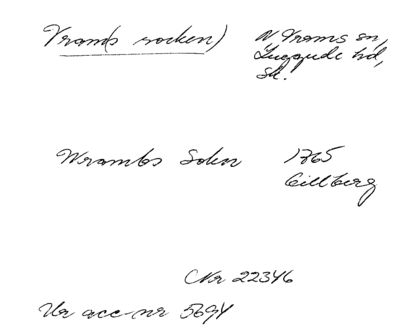 Vrambs socken) N Vrams sn,
Luggude hd,
Sk.
Wrambs Sokn 1765
Gillberg
CNr 22346
Ur acc-nr 5694